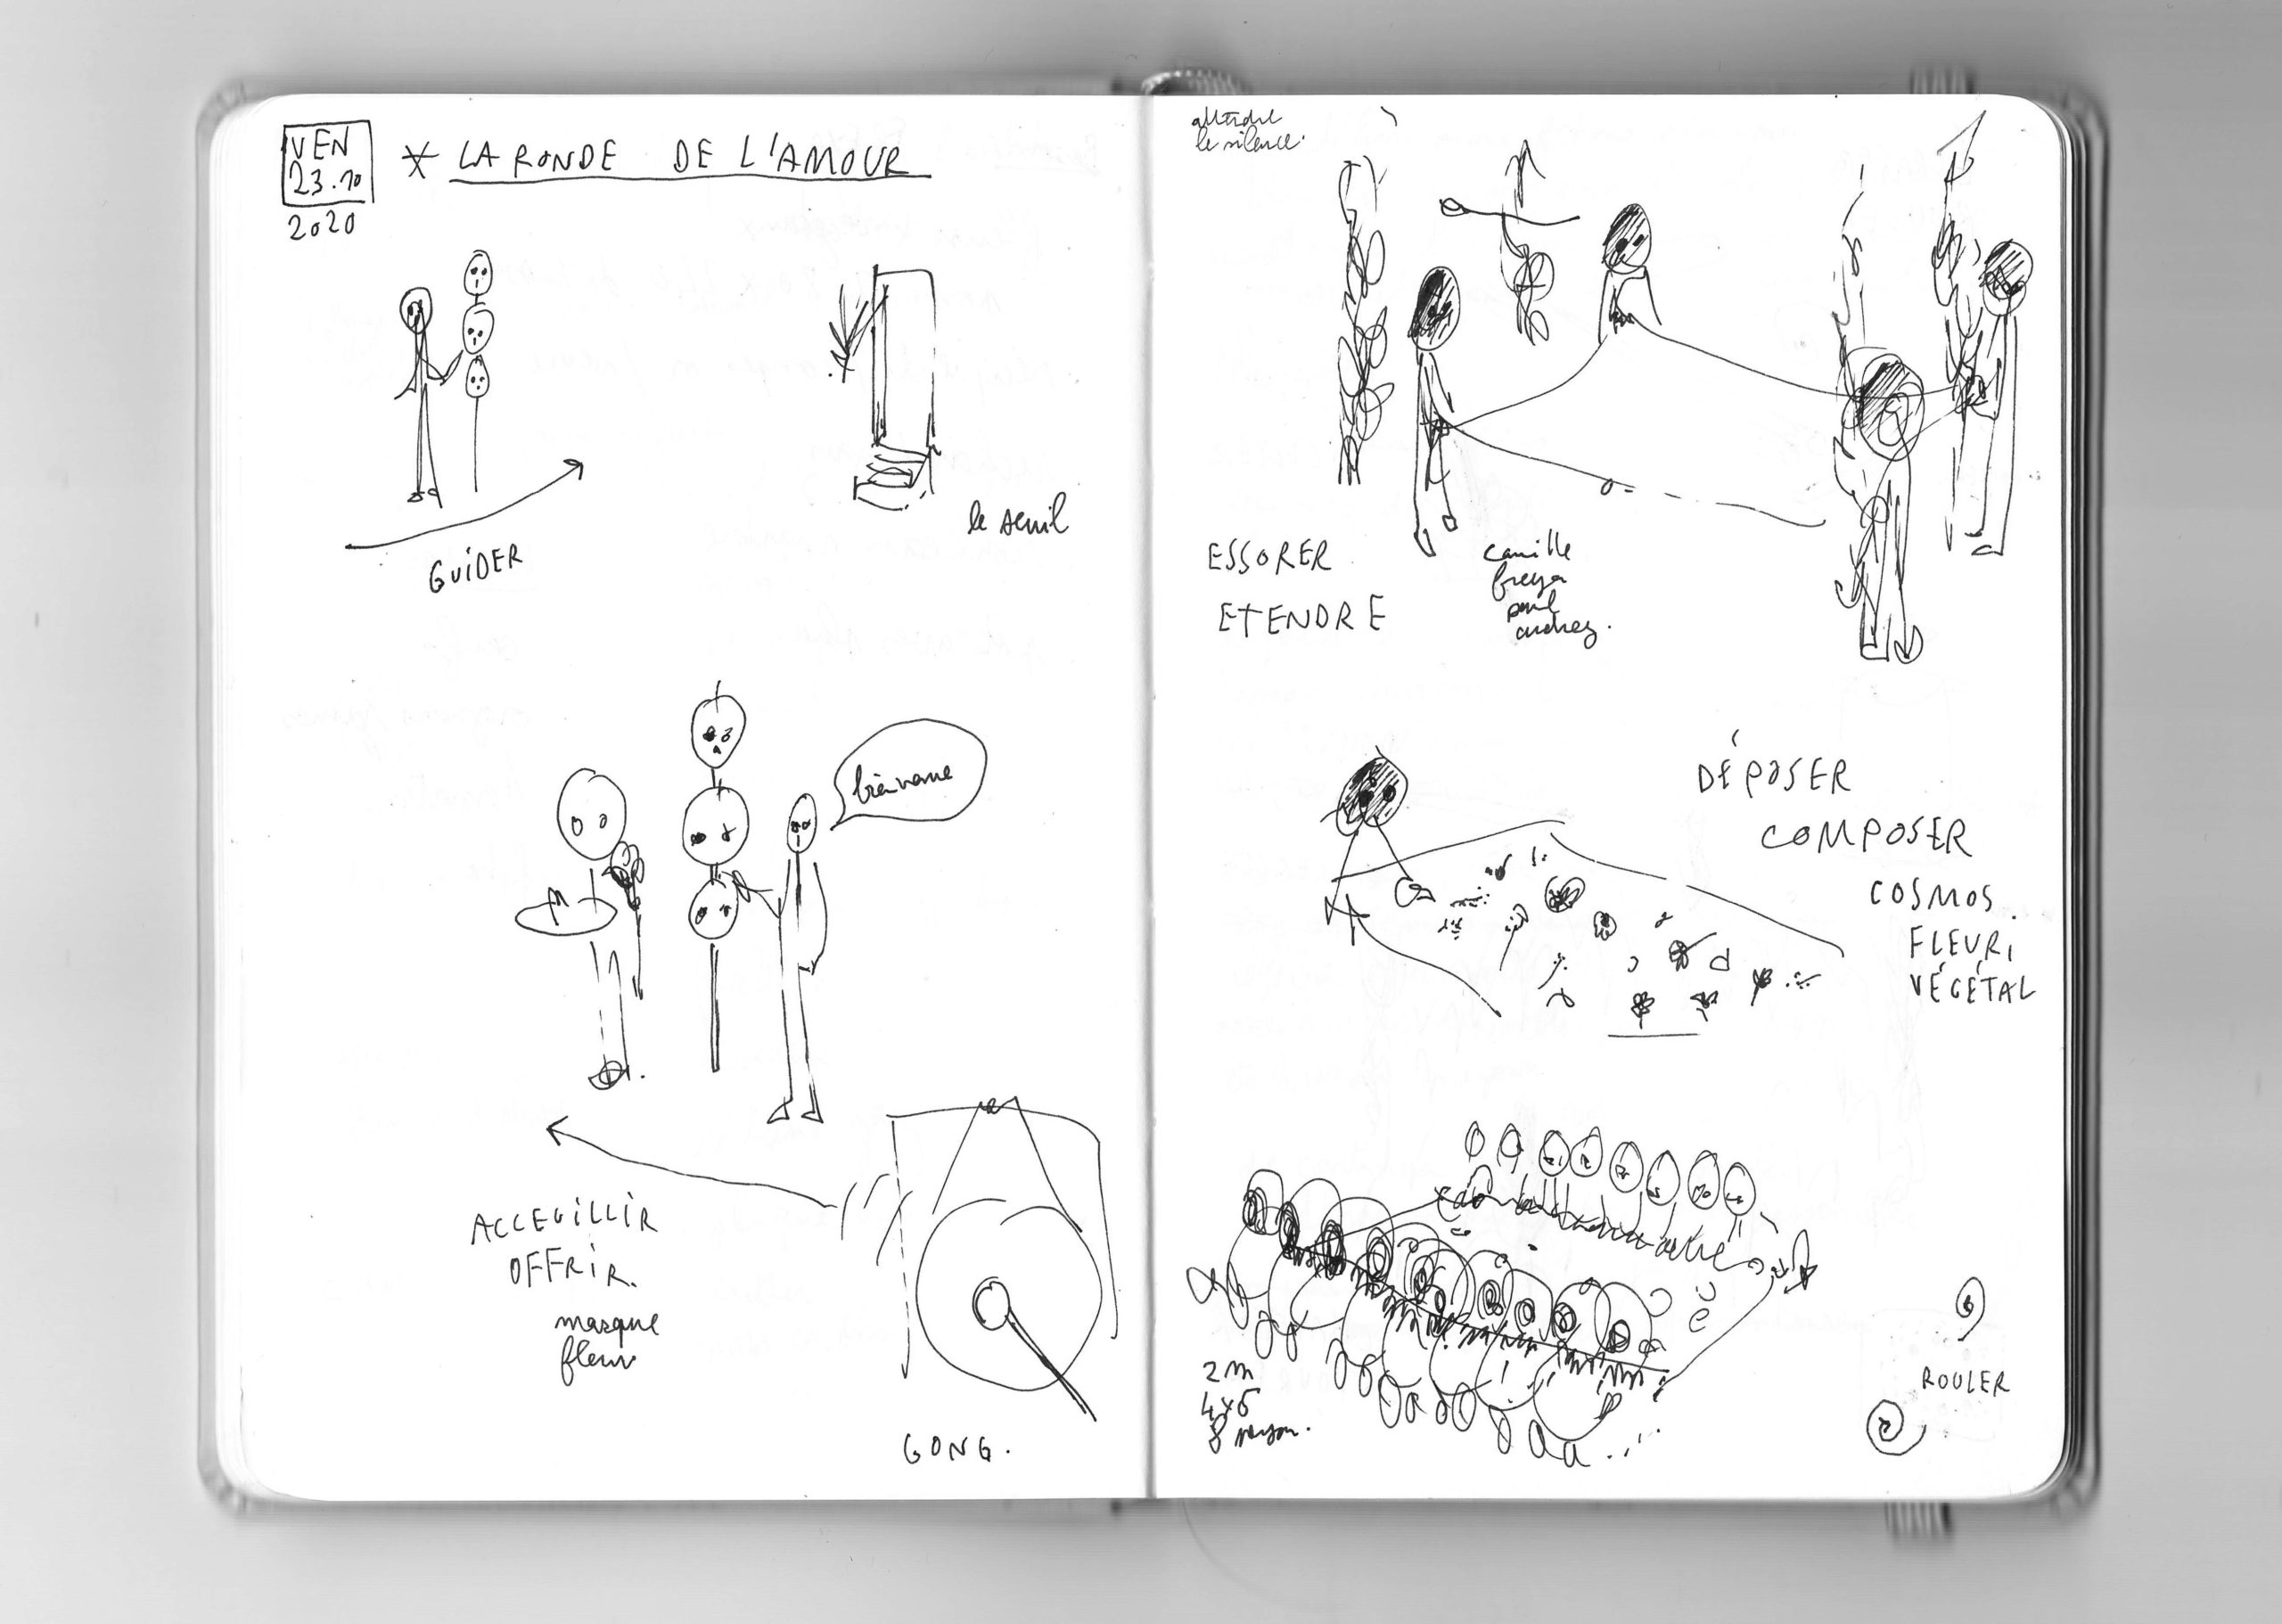 VEN
23.10
2020
* LA RONDE DE L'AMOUR
GUiDER
le seuil
bienvenue
ACCEUiLLiR
OFFRiR.
masque
fleur
GONG.
attendre
le silence.
ESSORER
ETENDRE
camille
freya
paul
audrey.
DÉPOSER
COMPOSER
COSMOS.
FLEURI
VÉGÉTAL
2m
4x5
8
ROULER